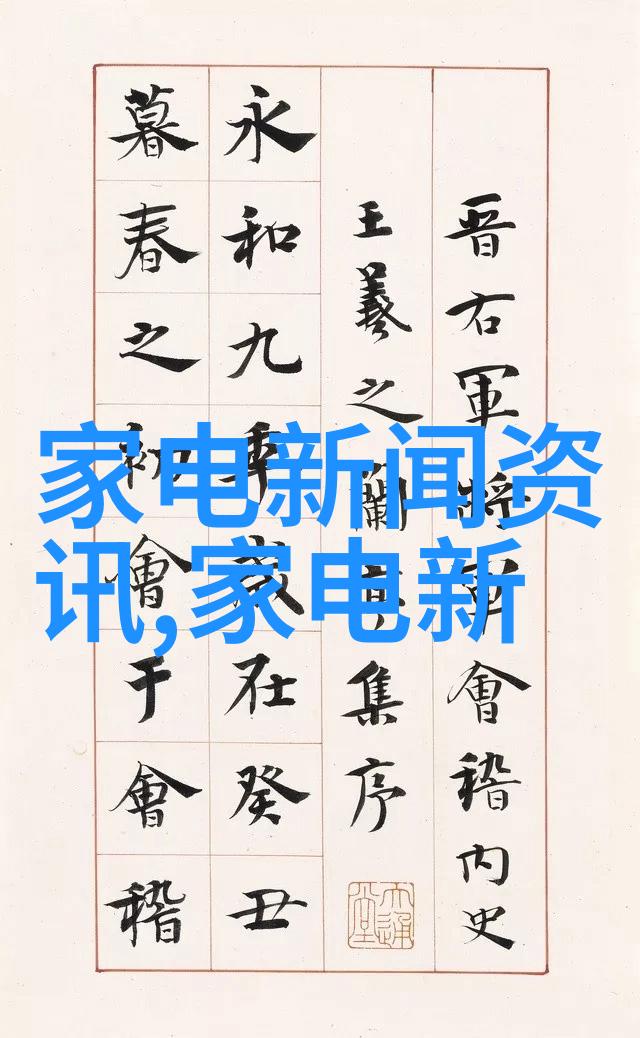 晋右軍將軍會稽内史
王羲之蘭亭集序
永和九年歲在癸丑
暮春之初會于會稽
家电新闻资
讯,家电新